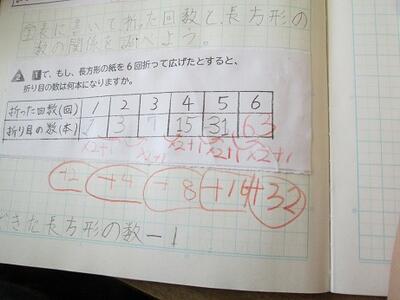 表に書いて折った回数と、長方形の
数の関係を調べよう。
2 1で、もし、長方形の紙を6回折って広げたとすると、
折り目の数は何本になりますか。
折った回数(回) 1 2 3 4 5 6
折り目の数(本) 1 3 7 15 31 63
×2+1 ×2+1 ×2+1 ×2+1 ×2+1
+2 +4 +8 +16 +32
できた長方形の数－1